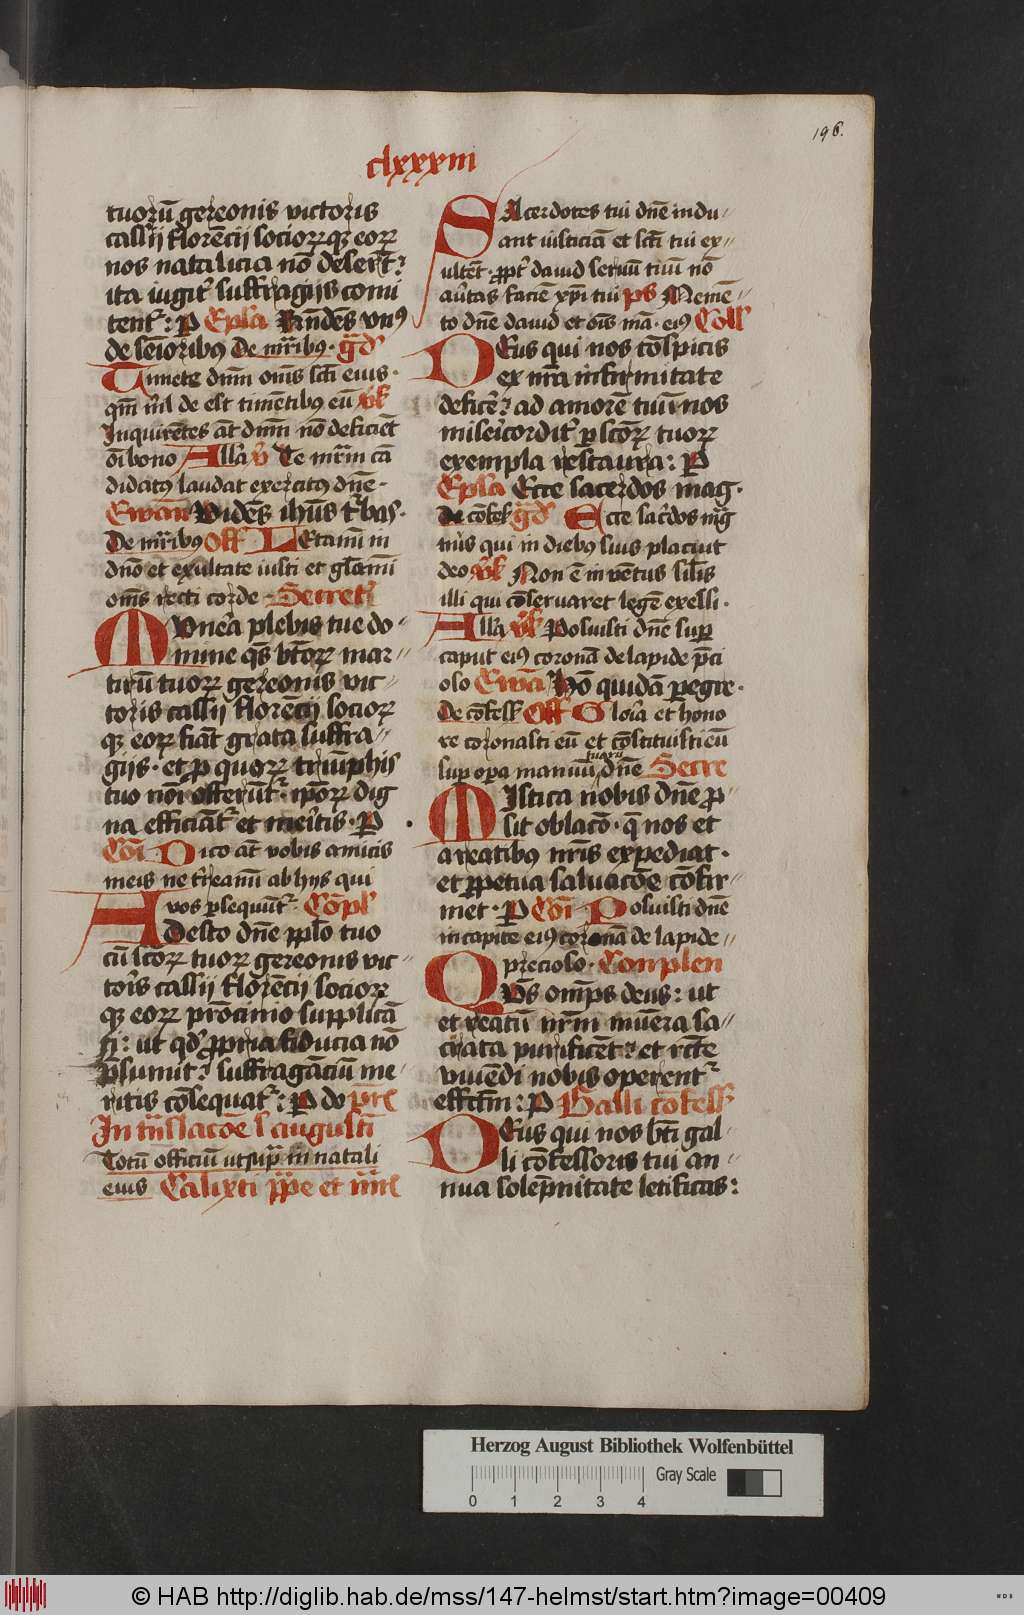 196.
clxxxiii
tuorū gereonis victoris
cassij florēcij socioꝝqꝫ eoꝝ
nos natalicia nō deserēt ?
ita iugit' suffragijs comi
tent' : P Epl'a Rn̄dēs vnꝰ
de sēioribꝰ De mr̄ibꝰ . gr̄d'
Timete dnm̄ om̄s sc̄i eius .
qm̄ nl̄ de est timētibꝰ eū v̄s
Inquirētes āt dnm̄ nō deficiēt
oi bono All'a v̄ Te mr̄m cā
didatꝰ laudat exercitꝰ dn̄e .
Ewāū Vidēs ihūs t'bas .
De mr̄ibꝰ Off LEtamī in
dnō et exultate iusti et gl'amī
om̄s recti corde . Secret'
MVnera plebis tue do-
mine qs̄ btōꝝ mar-
tirū tuoꝝ gereonis vic-
toris cassij florēcij socioꝝ
qꝫ eoꝝ fiāt grata suffra-
gijs . et p quoꝝ triūphis
tuo noī offerūt' . ipōꝝ dig
na efficiāt' et meritis . P
Cōī Dico āt vobis amicis
meis ne t'reamī ab hijs qui
vos ꝑsequūt' . Cōpl'
Adesto dn̄e ppl'o tuo
cū sc̄oꝝ tuoꝝ gereonis vic-
toris cassij florēcij socioꝝ
qꝫ eoꝝ prōcinio supplicā
ti : ut qd' ꝓpria fiducia nō
p̄sumit ? suffragāciū me-
ritis cōsequat' : P do pr̄e
In trāslacōe s augusti
Totū officiū ut supͣ in natali
eius Calixti pp̄e et mr̄is
SAcerdotes tui dn̄e indu-
ant iusticiā et sc̄i tui ex-
ultēt . ꝓpt' dauid seruū tuū nō
au'tas faciē xp̄i tui ps Memē-
to dn̄e dauid et om̄s mā . eiꝰ Coll'
DEus qui nos cōspicis
ex nr̄a infirmitate
defice' ? ad amorē tuū nos
misericordit' ꝑ sc̄oꝝ tuoꝝ
exempla restaura : P
Epl'a Ecce sacerdos mag .
de cōfes gr̄d' Ecce sac'dos mḡ
nus qui in diebꝰ suis placuit
deo v̄s Non ē inuētus sil'is
illi qui cōseruaret legē exelsi .
All'a v̄s Posuisti dn̄e suꝑ
caput eiꝰ coronā de lapide p̄ci
oso Ewā Hō quidā ꝑegre .
De cōfess' Off Gloria et hono
re coronasti eū et cōstituisti eū
suꝑ oꝑa manuū tuarū dn̄e Secre
MIstica nobis dn̄e ꝓ-
sit oblacō . q̄ nos et
a reatibꝰ nr̄is expediat .
et ꝑpetua saluacōe cōfir-
met . P Cōī Posuisti dn̄e
in capite eiꝰ coronā de lapide-
precioso . Conplen
QVs om̄ps deus : ut
et reatū nr̄m mūera sa-
crata purificēt ? et rc̄te
viuēdi nobis operent'
effctm̄ : P Galli cōfess'
DEus qui nos bt̄i gal-
li cōfessoris tui an-
nua solēpnitate letificas :
Herzog August Bibliothek Wolfenbüttel
Gray Scale
0 1 2 3 4
© HAB http://diglib.hab.de/mss/147-helmst/start.htm?image=00409